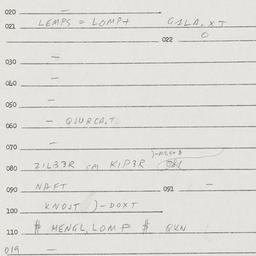 020 —
021 LEMPS = LOMP+ GILA, XT
022 O
030 —
040 —
050 —
060 — QJURCA, T
070 —
080 ZILB3R SM KIP3R
090 NAFT 091 —
KNOJT )-DOXT
100
110 # HENGL, LOMP # GKN
019 —